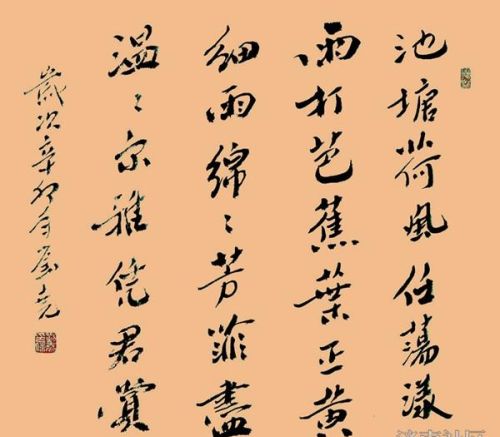 池塘荷風任蕩漾
雨打芭蕉葉正黃
細雨綿〻芳菲盡
溫〻尔雅凭君賞
歲次辛卯